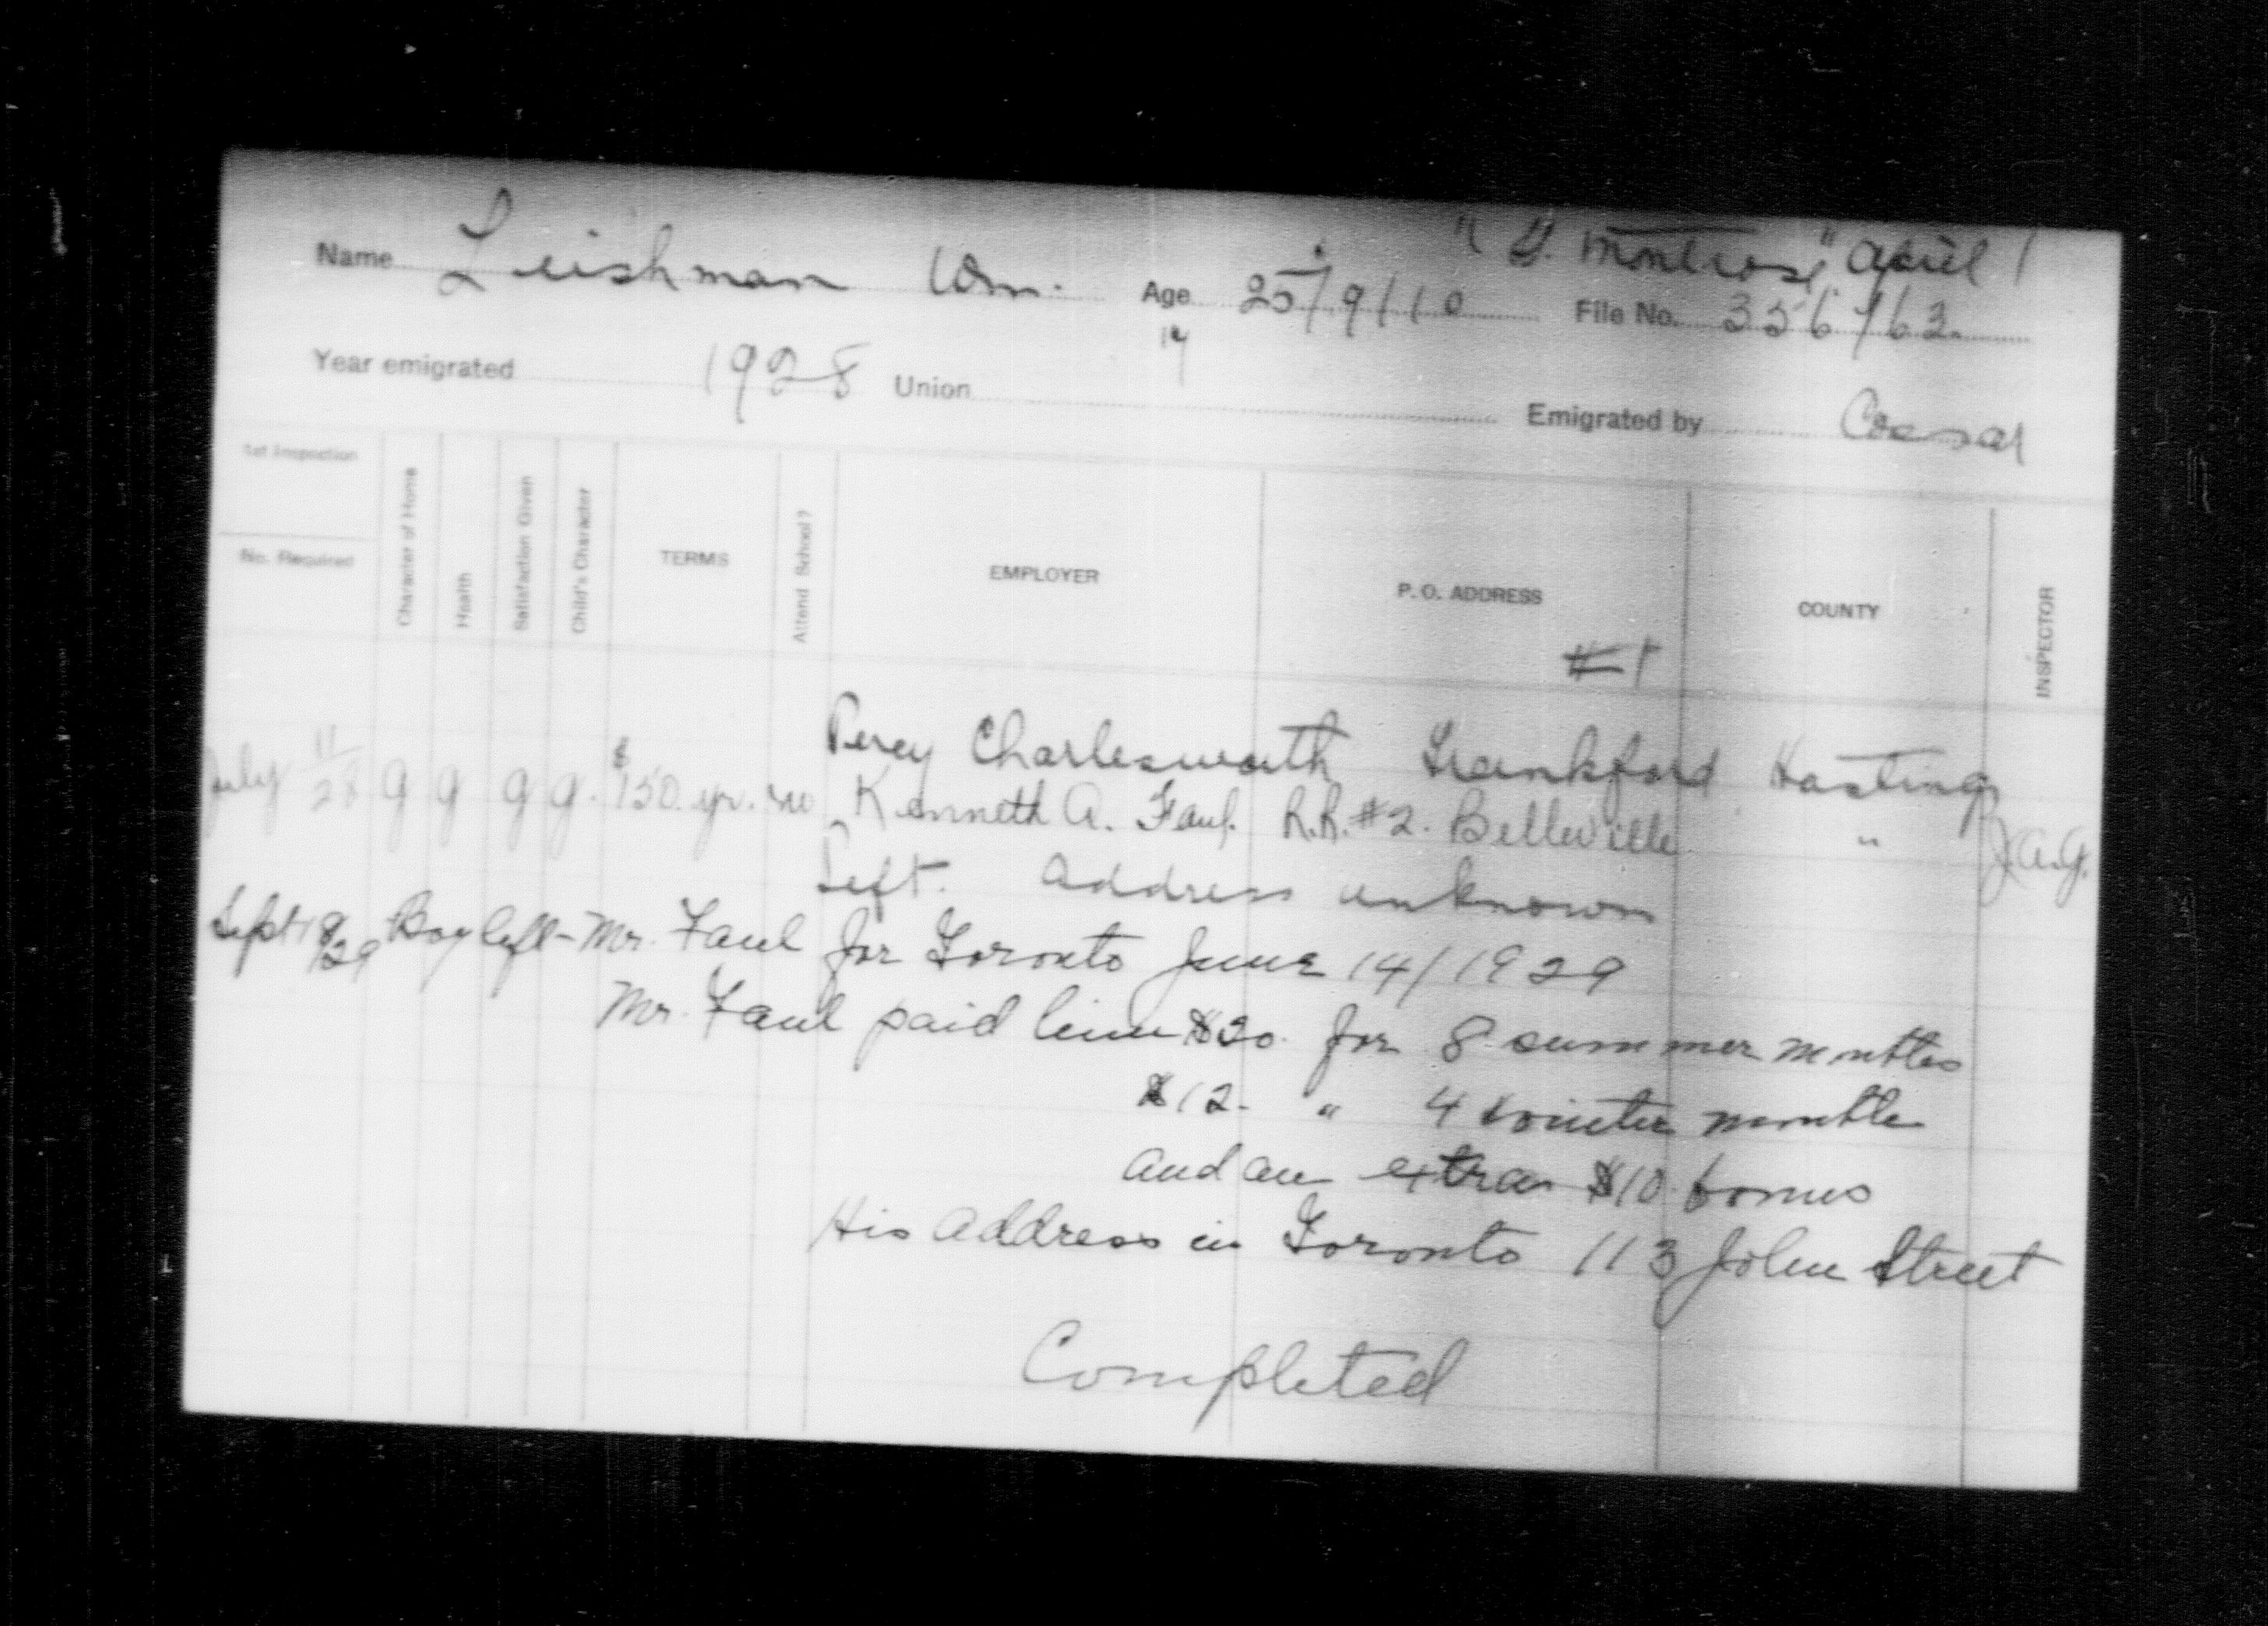 " D. Montrose" April 1
Name Leishman Wm. Age 25/9/10 File No. 356763
17
Year emigrated 1928 Union Emigrated by Coesar
1st Inspection
No. Required
Character of Home
Health
Satisfaction Given
Child's Character
TERMS
Attend School?
EMPLOYER
P. O. ADDRESS
COUNTY
INSPECTOR
#1
Percy Charlesworth Frankford Hastings
July 11/28 g g g g. $150. yr. no Kenneth A. Faul. R.R. #2. Belleville " J.A.G.
Left. Address unknown
Sept 18/29 Boy left - Mr. Faul for Toronto June 14/1929
Mr. Faul paid him $20. for 8 summer months
$12. " 4 winter months
and an extra $10 bonus
His address in Toronto 113 John Street
Completed